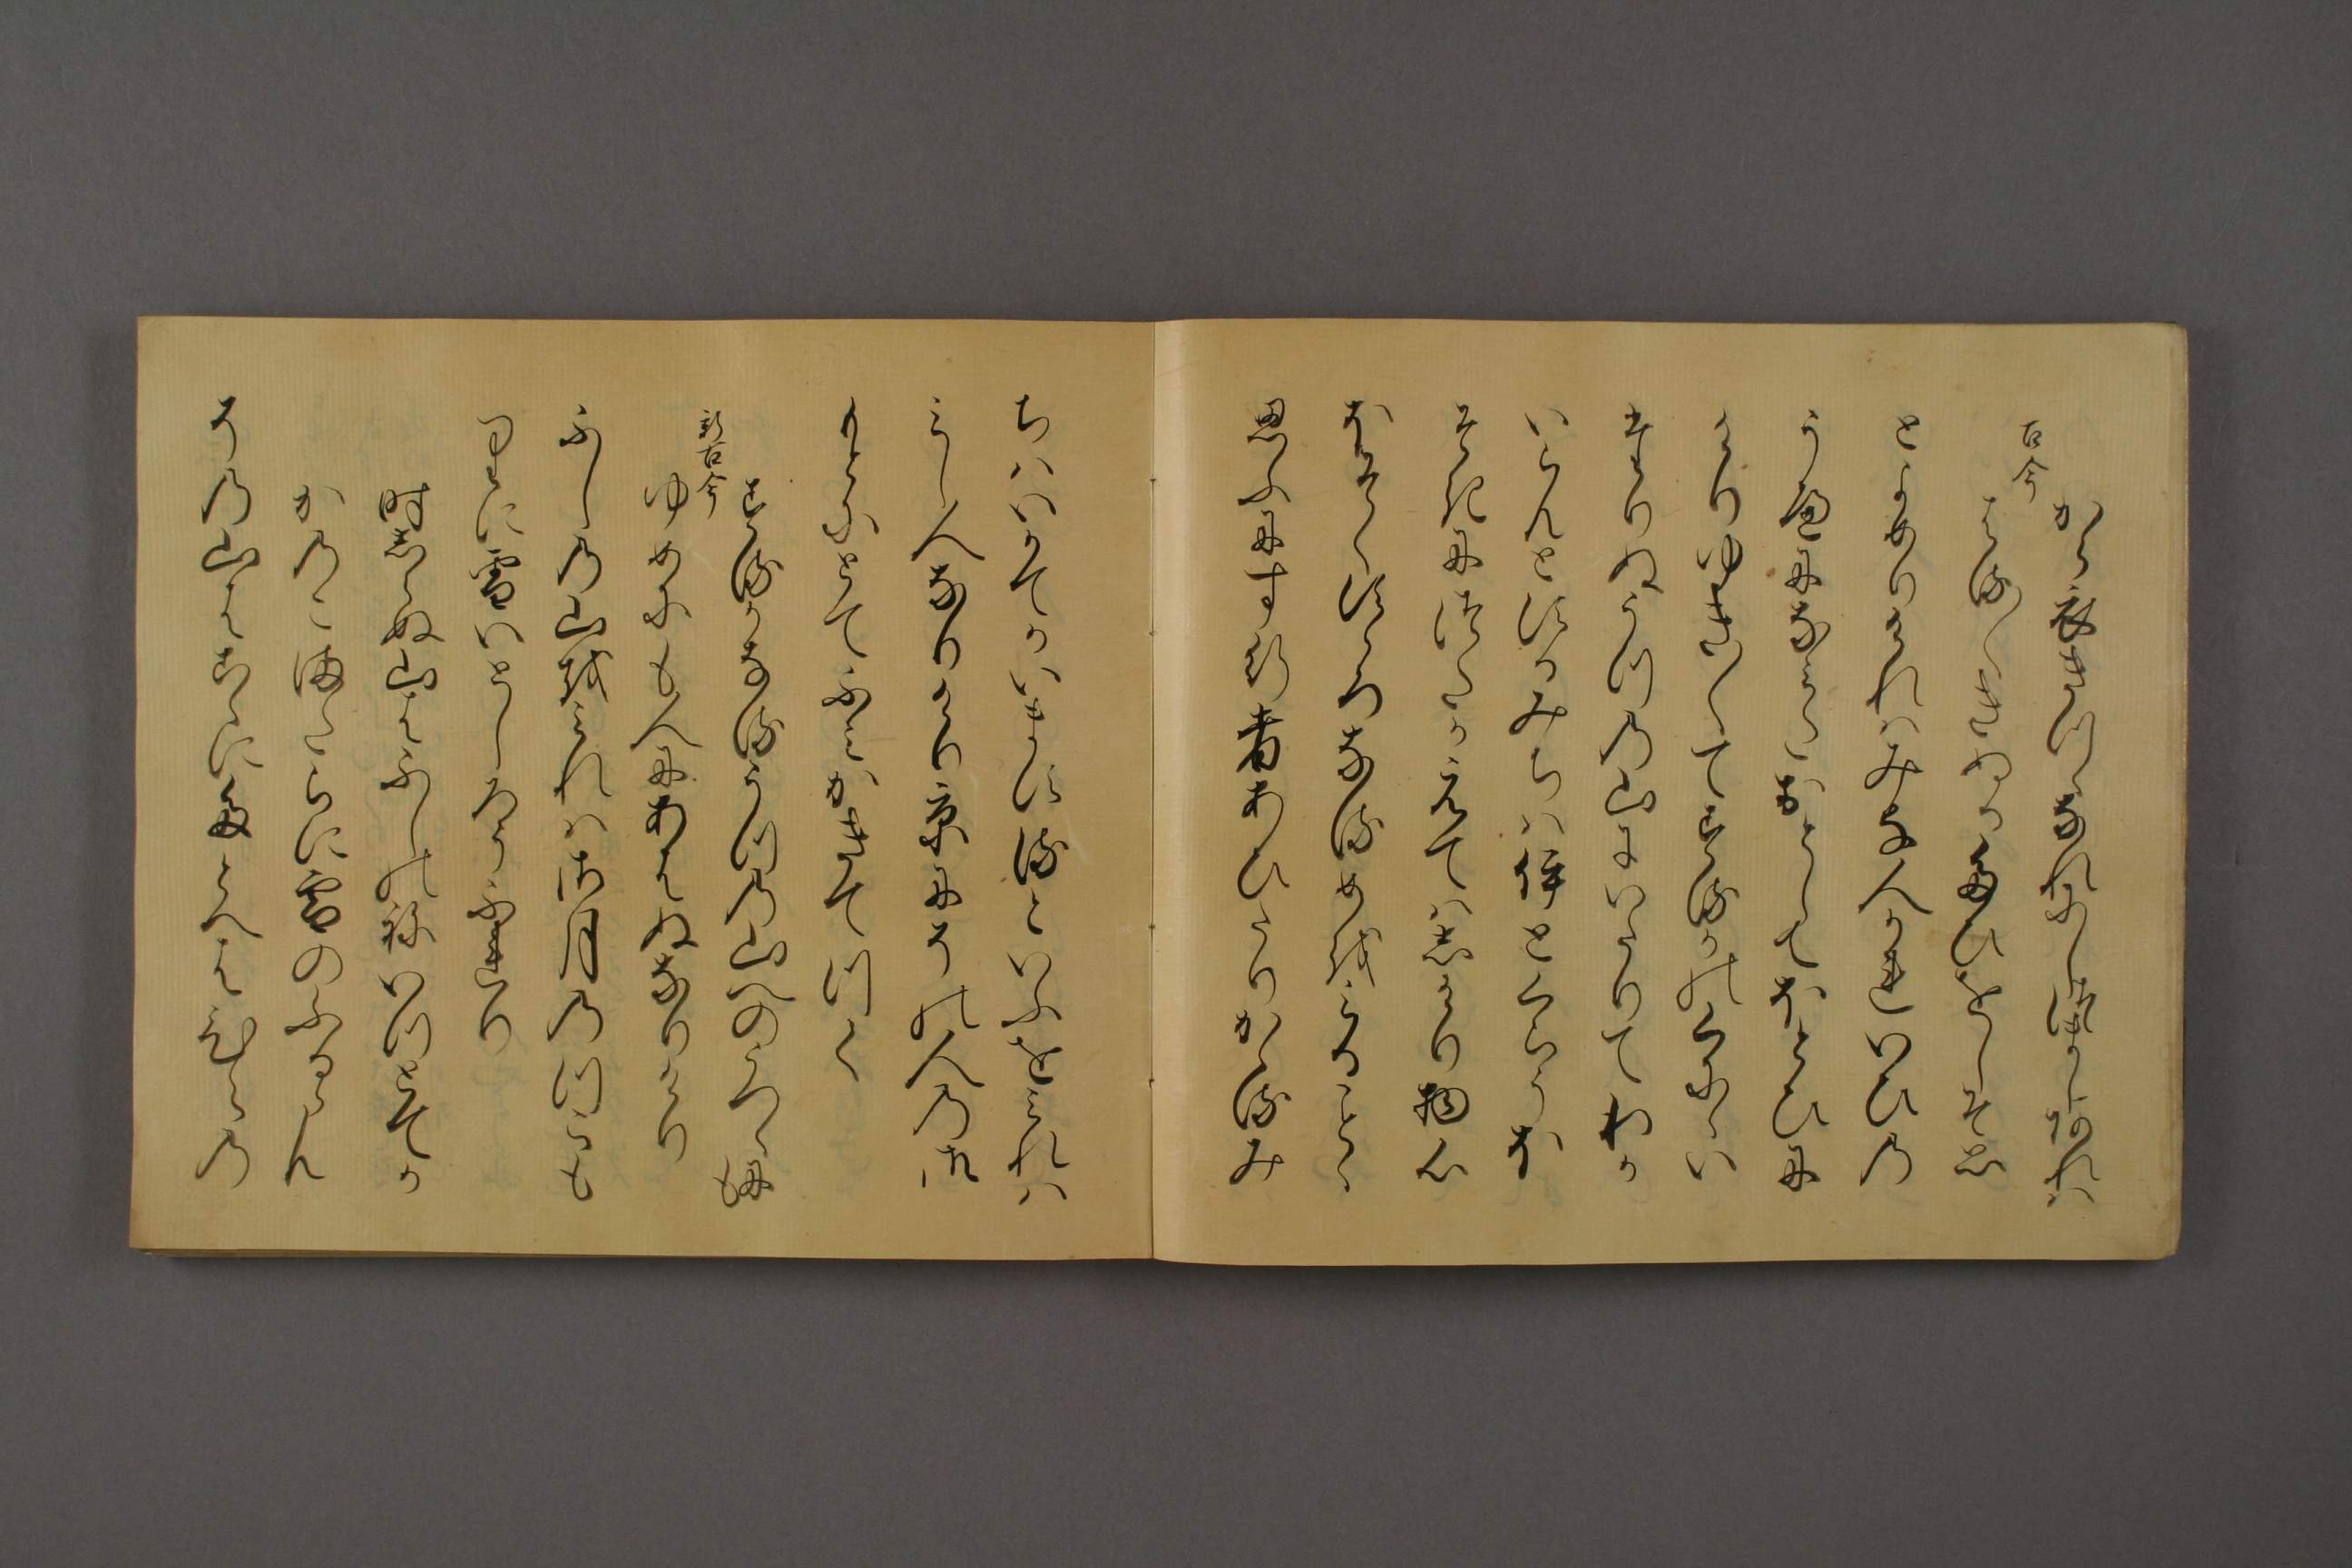 古今
から衣きつゝなれにしつましあれは
はる〳〵きぬるたひをしそ思
とよめりけれはみな人かれいひの
うへになみたおとしてほとひに
けりゆき〳〵てするかのくにゝい
たりぬうつの山にいたりてわか
いらんとするみちはいとくらうほ
そきにつたかえてはしけり物心
ほそくすゝろなるめをみることゝ
思ふにす行者あひたりかゝるみ
ちはいかてかいまするといふをみれは
みし人なりけり京にその人の御
もとにとてふみかきてつく
新古今
するかなるうつの山へのうつゝにも
ゆめにも人にあはぬなりけり
ふしの山をみれは五月のつこも
りに雪いとしろうふれり
時しらぬ山はふしのねいつとてか
かのこまたらに雪のふるらん
その山はこゝにたとへはひえの